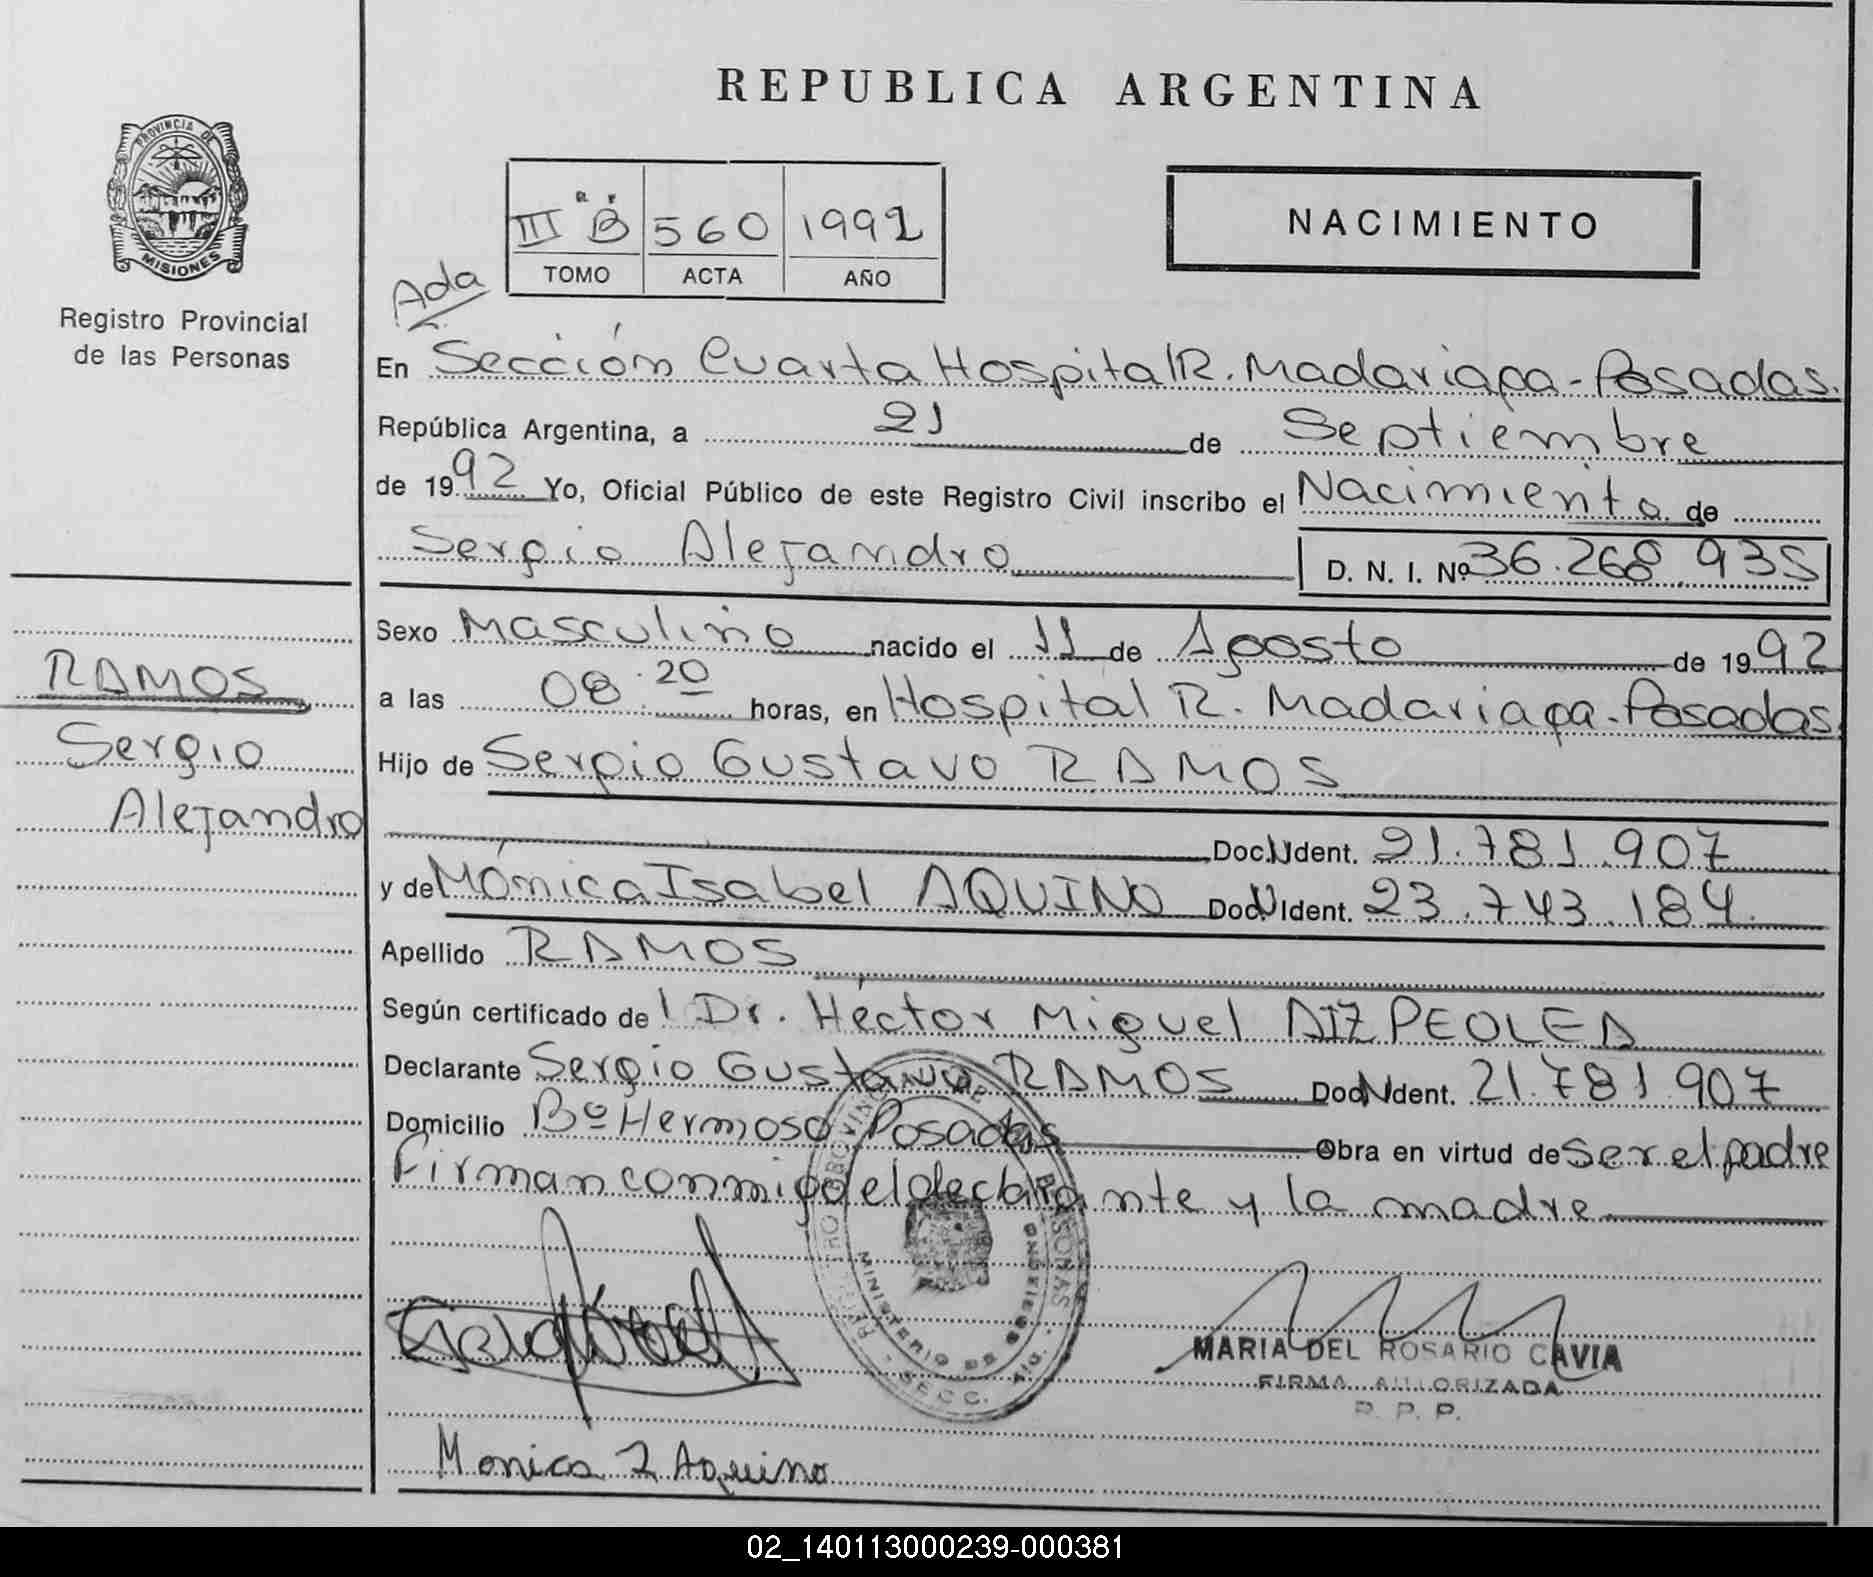 REPUBLICA ARGENTINA
PROVINCIA DE
MISIONES
Registro Provincial
de las Personas
III B 560 1992
TOMO ACTA AÑO
NACIMIENTO
Ada
En Sección Cuarta Hospital R. Madariaga - Posadas.
República Argentina, a 21 de Septiembre
de 1992 Yo, Oficial Público de este Registro Civil inscribo el Nacimiento de
Sergio Alejandro D. N. I. Nº 36.268.935
Sexo Masculino nacido el 11 de Agosto de 1992
a las 08.20 horas, en Hospital R. Madariaga - Posadas.
Hijo de Sergio Gustavo RAMOS
Doc. N Ident. 21.781.907
y de Mónica Isabel AQUINO Doc N Ident. 23.743.184.
Apellido RAMOS
Según certificado del Dr. Héctor Miguel AIZPEOLEA
Declarante Sergio Gustavo RAMOS Doc N Ident. 21.781.907
Domicilio Bº Hermoso Posadas Obra en virtud de Ser el padre
Firman conmigo el declarante y la madre
RAMOS
Sergio
Alejandro
MINISTERIO DE GOBIERNO
SECC. 4
MARIA DEL ROSARIO CAVIA
FIRMA AUTORIZADA
R. P. P.
Monica I Aquino
02_140113000239-000381